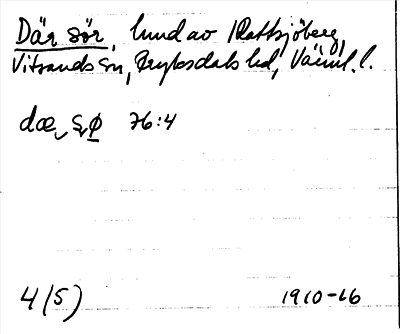 Där sör, hmd av Rattsjöberg,
Vitsands sn, Fryksdals hd, Värml. l.
dæ, sø 76:4
4 (5) 1910-16